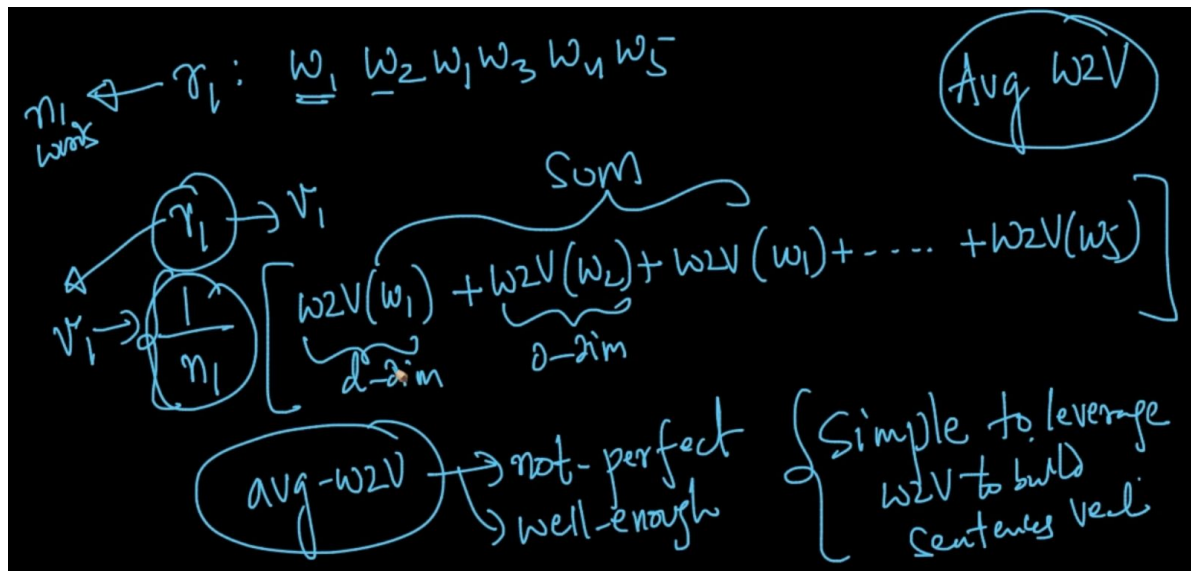 r₁ : w₁ w₂ w₁ w₃ w₄ w₅
Avg W2V
n₁
words
Sum
r₁ → v₁
v₁ → 1/n₁ [ w2v(w₁) + w2v(w₂) + w2v(w₁) + ..... + w2v(w₅) ]
d-dim
d-dim
avg-w2v → not-perfect
→ well-enough
Simple to leverage
w2v to build
sentences